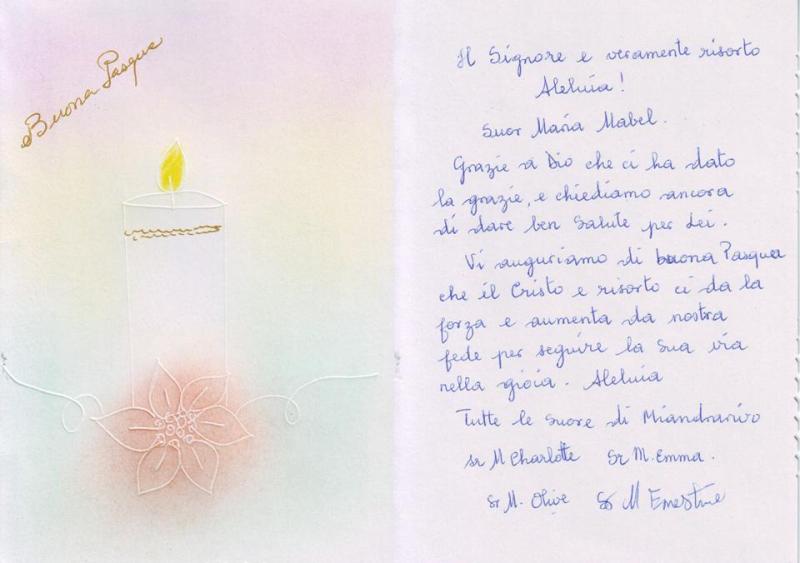 Buona Pasqua
Il Signore e veramente risorto
Aleluia!
Suor Maria Mabel.
Grazie a Dio che ci ha dato
la grazie, e chiediamo ancora
di dare ben Salute per Lei.
Vi auguriamo di buona Pasquea
che il Cristo e risorto ci da la
forza e aumenta da nostra
fede per seguire la sua via
nella gioia. Aleluia
Tutte le suore di Miandrarivo
sr M Charlotte Sr M. Emma.
Sr M. Olive Sr M Ernestine